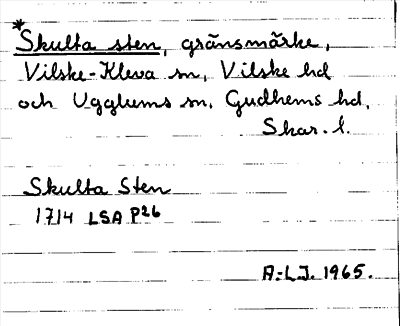 *Skulta sten, gränsmärke,
Vilske-Kleva sn, Vilske hd
och Ugglums sn, Gudhems hd,
Skar. l.
Skulta Sten
1714 LSA P26
A-LJ. 1965.